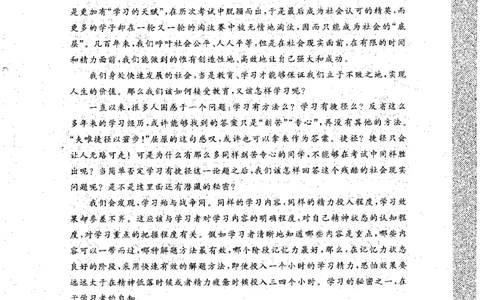 是更加有“学习的天赋”,在历次考试中脱颖而出,于是最后成为社会认可的精英,而
更多的学子却在一轮又一轮的淘汰赛中被无情地淘汰,因而只能成为社会的“底
层”。几百年来,我们呼吁社会公平、人人平等,但是在社会现实面前,在有限的时间
和精力面前,我们能做到的惟有创造性地、高效地让自己强大和成功。
我们身处快速发展的社会,当是教育、学习才能够保证我们立于不败之地,实现
人生的价值。那么我们该如何接受教育,又该怎样学习呢?
一直以来,很多人困惑于一个问题:学习有方法么?学习有捷径么?反省这么
多年来的学习经历,或许能够找到的答案只是“刻苦”“专心”,再没有其他的方法。
“夫唯捷径以窘步!”屈原的这句感叹,或许也可以拿来作为答案。捷径?捷径只会
让人无路可走!可是为什么有那么多同样刻苦专心的同学,不能够在考试中同样胜
出呢?当简单否定学习有捷径这一论题之后,我们该怎样回答这个残酷的社会现实
问题呢?是不是这里面还有潜藏的秘密?
我们会发现,学习殆与战争同。同样的学习内容,同样的精力投入程度,学习效
果却参差不齐。这应该与学习者对学习内容的明确程度,对自己精神状态的认知程
度,对学习重点的把握程度有关。假如学习者清晰地知道哪些内容是重点,哪些内
容可以一带而过,哪种解题方法最有效,哪个阶段记忆力最好,那么,在记忆力状态
良好的阶段,采用快速有效的解题方法,即使投入一个小时的学习精力,恐怕效果要
远远大于在精神低落时候或者精力疲惫时候投入三四个小时。学习的秘密之一,在
于学习者的自知